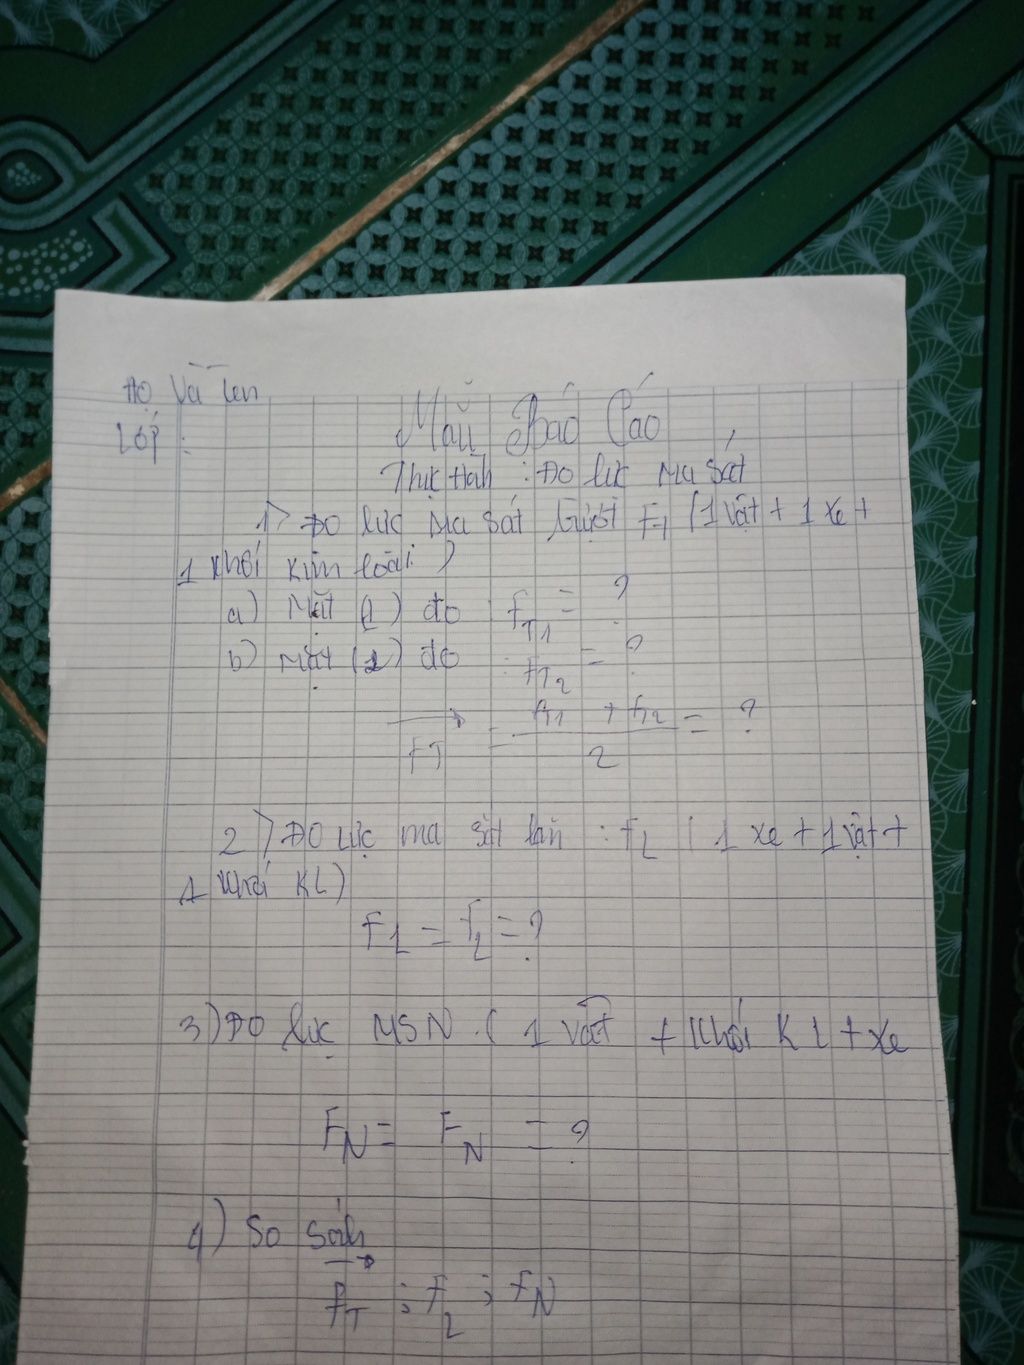 Họ Và Tên
Lớp :
Mẫu Báo Cáo
Thực Hành : Đo lực ma sát
1> Đo lực ma sát trượt FT (1 vật + 1 xe +
1 khối kim loại)
a) Mặt (1) đo : FT1 = ?
b) Mặt (2) đo : FT2 = ?
FT = FT1 + FT2 / 2 = ?
2> Đo lực ma sát lăn : FL ( 1 xe + 1 vật +
1 khối KL)
FL = FL = ?
3) Đo lực MSN ( 1 vật + khối KL + xe
FN = FN = ?
4) So sánh
FT ; FL ; FN